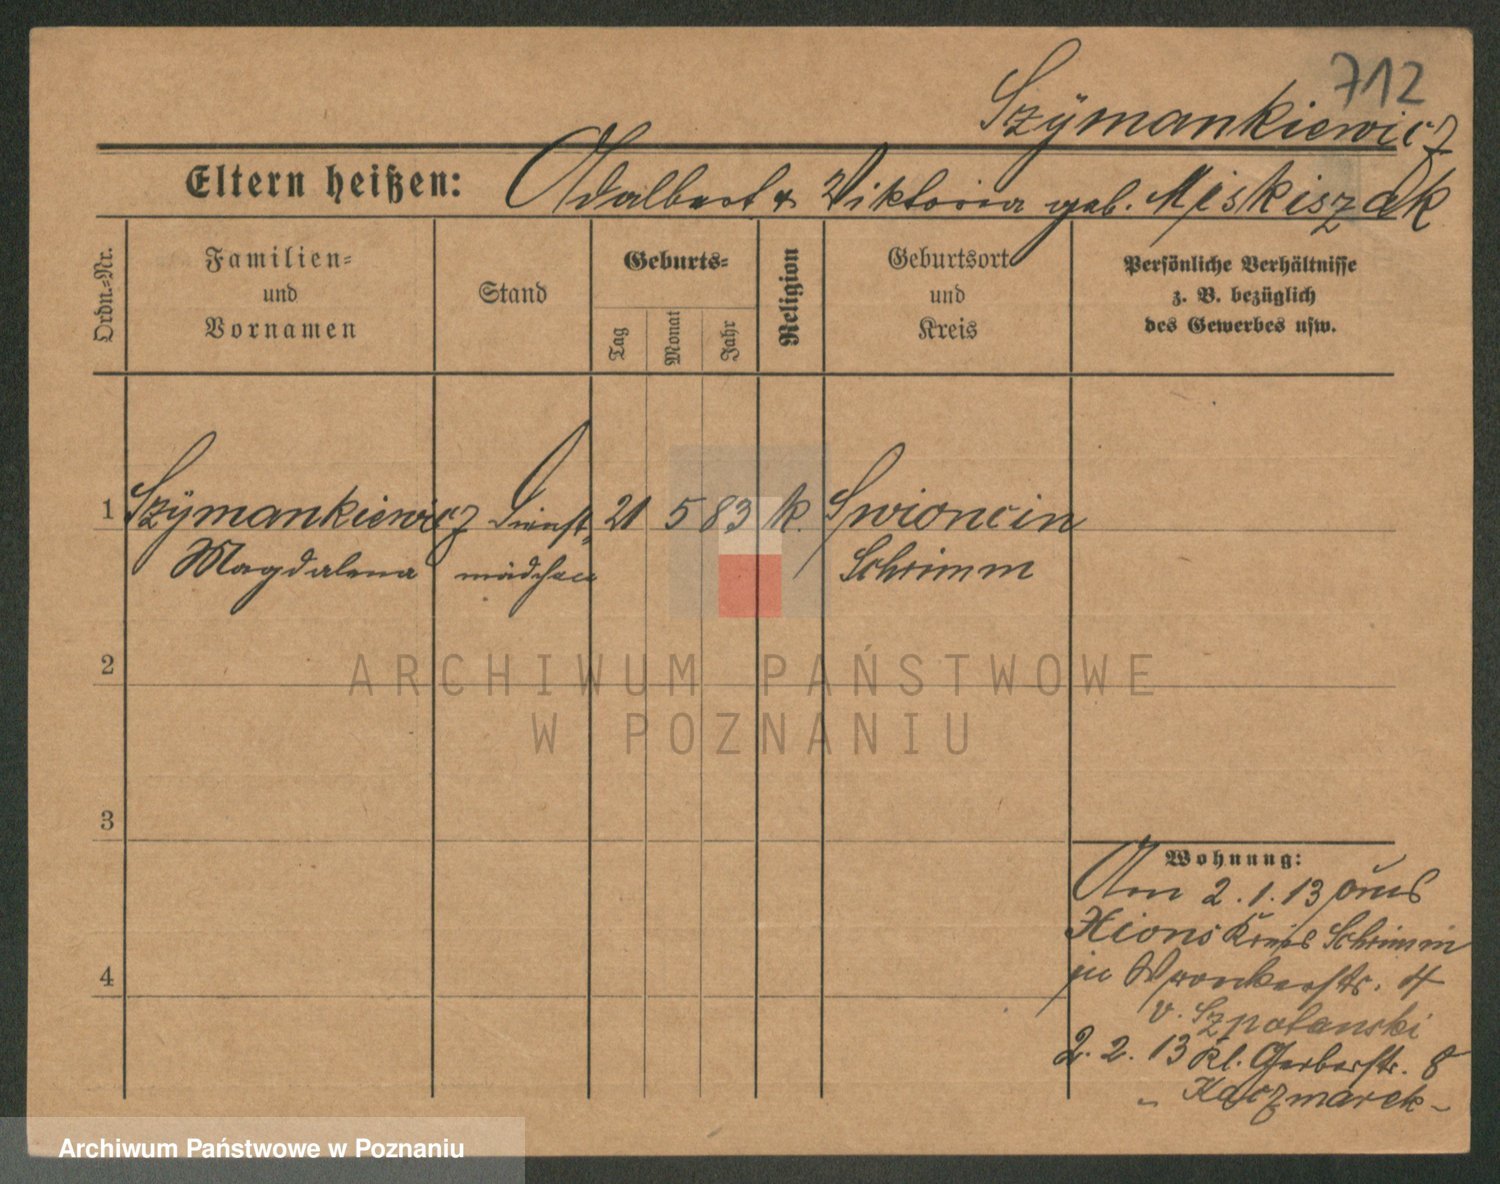 712
Szÿmankiewicz
Eltern heißen: Adalbert & Viktoria geb. Miskiszak
Ordn.-Nr.
Familien-
und
Vornamen
Stand
Geburts-
Tag
Monat
Jahr
Religion
Geburtsort
und
Kreis
Persönliche Verhältnisse
z. B. bezüglich
des Gewerbes usw.
1 Szÿmankiewicz Dienst- 21 5 83 k. Swioncin
Magdalena mädchen Schrimm
2
3
4
Wohnung:
Am 2.1.13 aus
Xions Kreis Schrimm
in Wronkerstr. 4
v. Szpotanski
2.2.13 Kl. Gerberstr. 8
Kaczmarek
ARCHIWUM PAŃSTWOWE
W POZNANIU
Archiwum Państwowe w Poznaniu